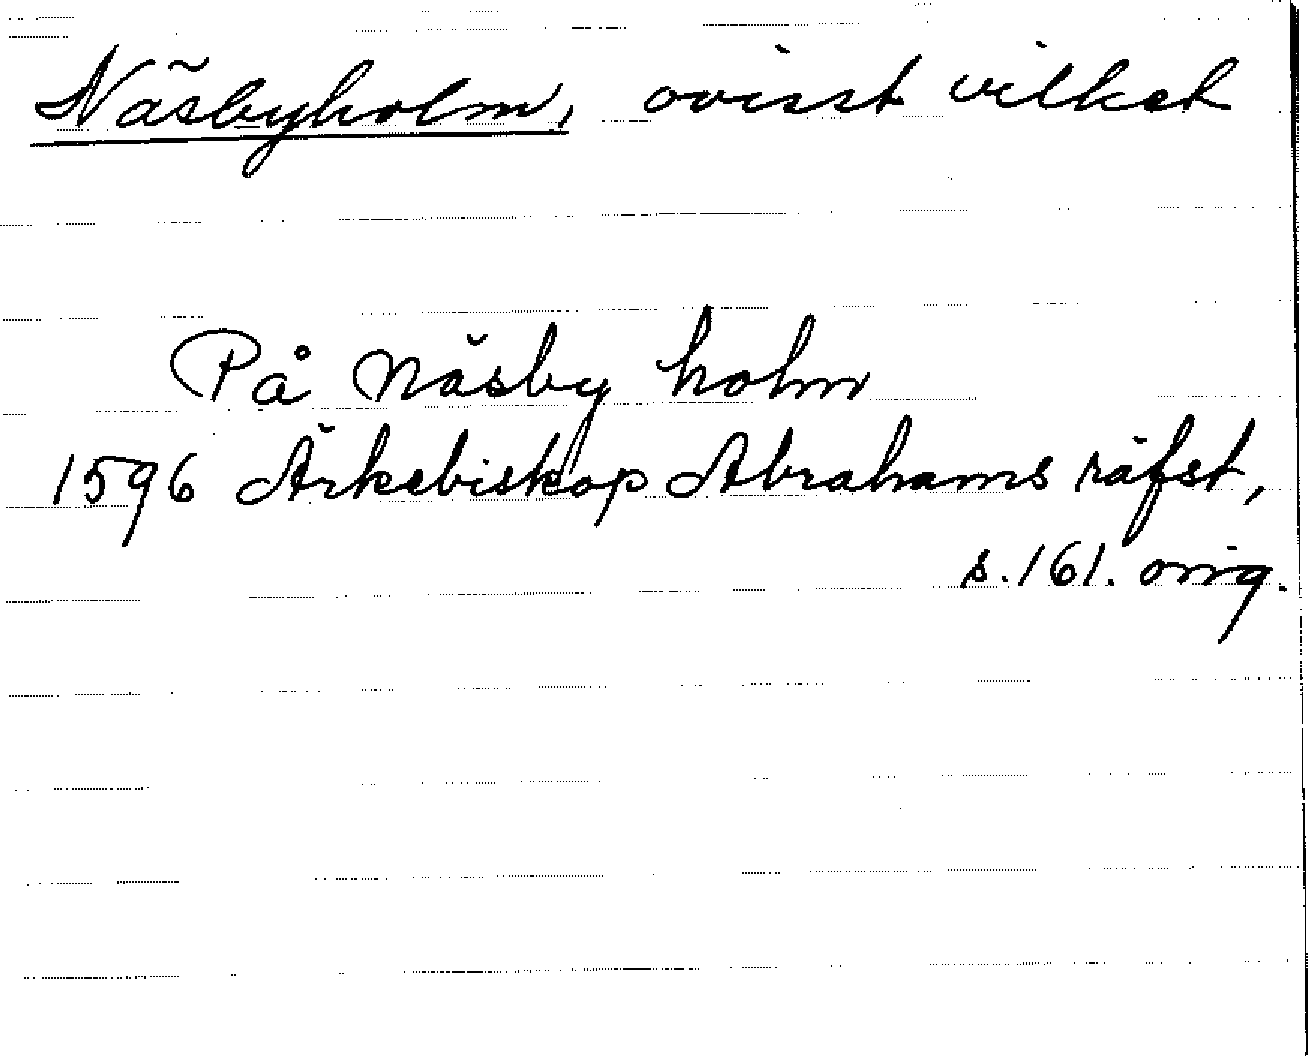 Näsbyholm, ovisst vilket
På Näsby holm
1596 Ärkebiskop Abrahams räfst,
s. 161. orig.